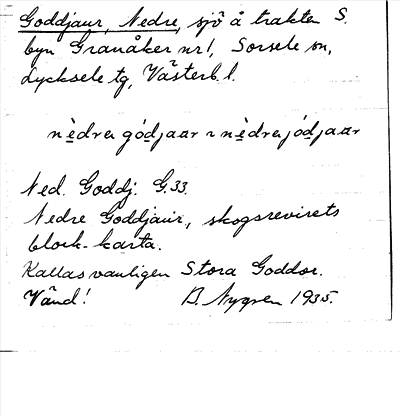 Goddjaur, Nedre, sjö å trakten S.
byn Granåker nr 1, Sorsele sn,
Lycksele tg, Västerb. l.
nèdre gódjaar ~ nèdre jódjaar
Ned. Goddj. G.33.
Nedre Goddjaur, skogsrevirets
block-karta.
Kallas vanligen Stora Goddor.
Vänd! B. Nygren 1935.